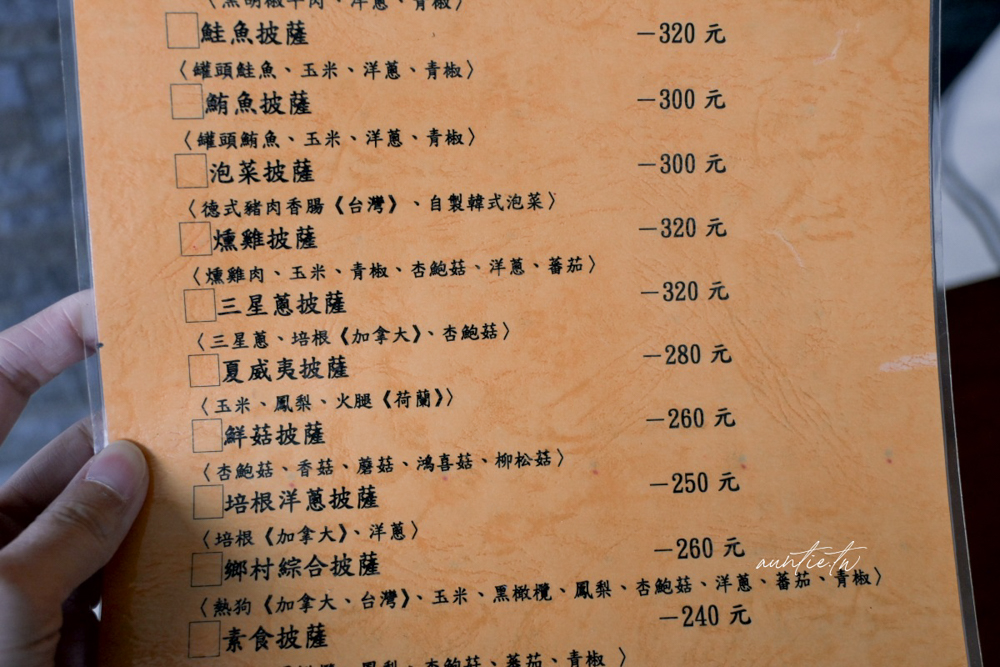 〈黑胡椒牛肉、洋蔥、青椒〉
鮭魚披薩 －320 元
〈罐頭鮭魚、玉米、洋蔥、青椒〉
鮪魚披薩 －300 元
〈罐頭鮪魚、玉米、洋蔥、青椒〉
泡菜披薩 －300 元
〈德式豬肉香腸《台灣》、自製韓式泡菜〉
燻雞披薩 －320 元
〈燻雞肉、玉米、青椒、杏鮑菇、洋蔥、蕃茄〉
三星蔥披薩 －320 元
〈三星蔥、培根《加拿大》、杏鮑菇〉
夏威夷披薩 －280 元
〈玉米、鳳梨、火腿《荷蘭》〉
鮮菇披薩 －260 元
〈杏鮑菇、香菇、蘑菇、鴻喜菇、柳松菇〉
培根洋蔥披薩 －250 元
〈培根《加拿大》、洋蔥〉
鄉村綜合披薩 －260 元
auntie.tw
〈熱狗《加拿大、台灣》、玉米、黑橄欖、鳳梨、杏鮑菇、洋蔥、蕃茄、青椒〉
素食披薩 －240 元
、鳳梨、杏鮑菇、蕃茄、青椒 〉